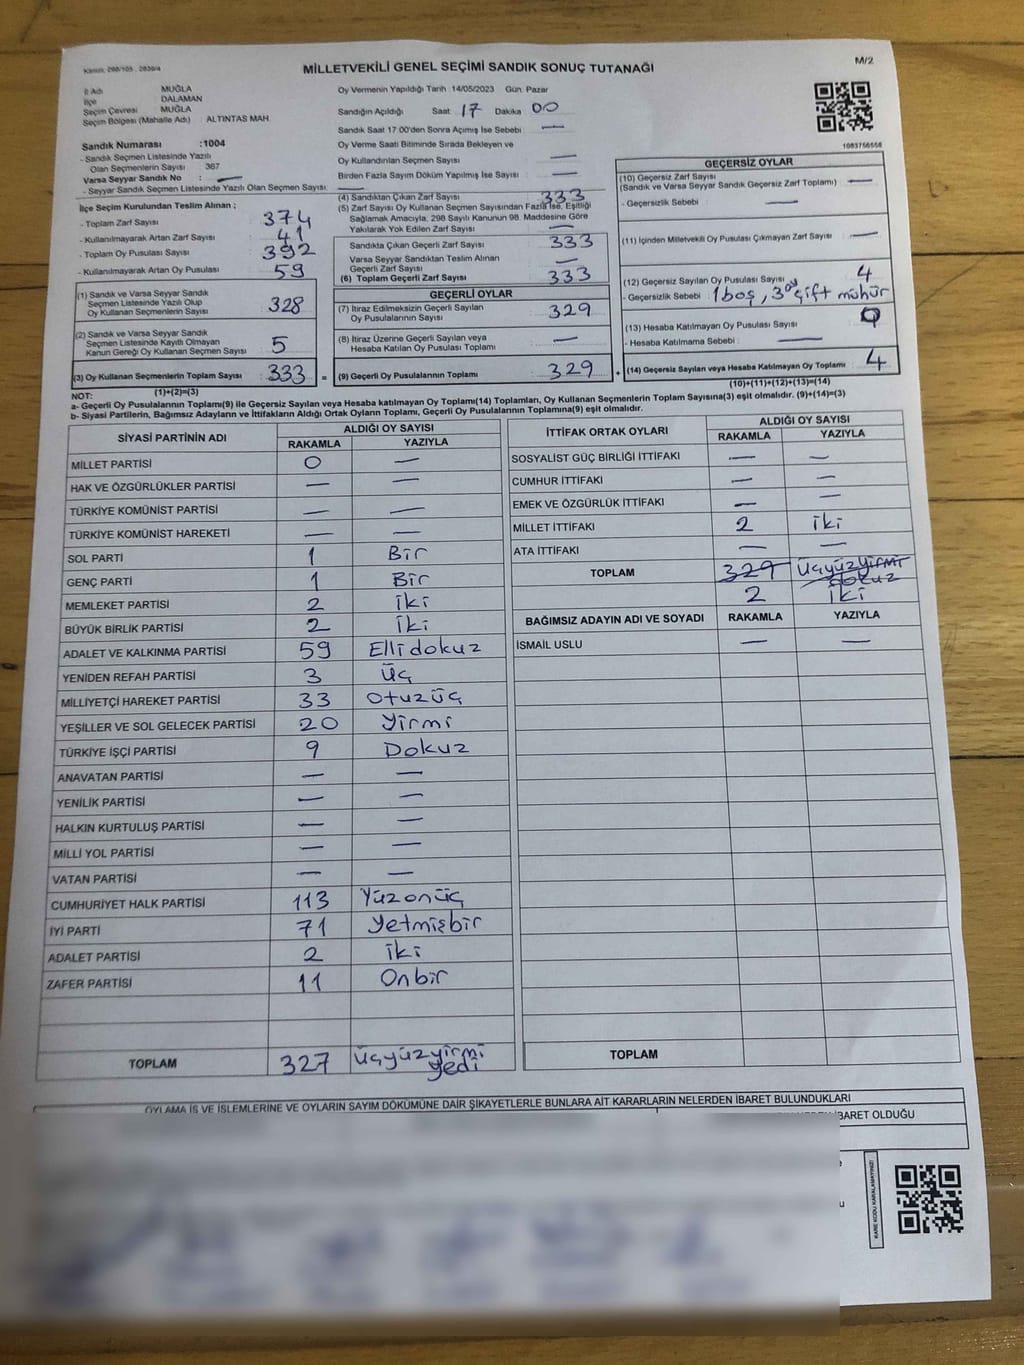 Kanun: 298/105 , 2839/4
MİLLETVEKİLİ GENEL SEÇİMİ SANDIK SONUÇ TUTANAĞI
M/2
İl Adı MUĞLA
İlçe DALAMAN
Seçim Çevresi MUĞLA
Seçim Bölgesi (Mahalle Adı) : ALTINTAS MAH.
Sandık Numarası :1004
- Sandık Seçmen Listesinde Yazılı
Olan Seçmenlerin Sayısı 367
Varsa Seyyar Sandık No : —
- Seyyar Sandık Seçmen Listesinde Yazılı Olan Seçmen Sayısı: —
Oy Vermenin Yapıldığı Tarih 14/05/2023 Gün: Pazar
Sandığın Açıldığı Saat 17 Dakika 00
Sandık Saat 17 00'den Sonra Açımış İse Sebebi —
Oy Verme Saati Bitiminde Sırada Bekleyen ve
Oy Kullandırılan Seçmen Sayısı —
Birden Fazla Sayım Döküm Yapılmış İse Sayısı —
1083756556
İlçe Seçim Kurulundan Teslim Alınan ;
- Toplam Zarf Sayısı 374
- Kullanılmayarak Artan Zarf Sayısı 41
- Toplam Oy Pusulası Sayısı 392
- Kullanılmayarak Artan Oy Pusulası 59
(1) Sandık ve Varsa Seyyar Sandık
Seçmen Listesinde Yazılı Olup
Oy Kullanan Seçmenlerin Sayısı 328
(2) Sandık ve Varsa Seyyar Sandık
Seçmen Listesinde Kayıtlı Olmayan
Kanun Gereği Oy Kullanan Seçmen Sayısı 5
(3) Oy Kullanan Seçmenlerin Toplam Sayısı 333 =
(1)+(2)=(3)
(4) Sandıktan Çıkan Zarf Sayısı 333
(5) Zarf Sayısı Oy Kullanan Seçmen Sayısından Fazla İse, Eşitliği
Sağlamak Amacıyla, 298 Sayılı Kanunun 98. Maddesine Göre
Yakılarak Yok Edilen Zarf Sayısı —
Sandıkta Çıkan Geçerli Zarf Sayısı 333
Varsa Seyyar Sandıktan Teslim Alınan
Geçerli Zarf Sayısı —
(6) Toplam Geçerli Zarf Sayısı 333
GEÇERLİ OYLAR
(7) İtiraz Edilmeksizin Geçerli Sayılan
Oy Pusulalarının Sayısı 329
(8) İtiraz Üzerine Geçerli Sayılan veya
Hesaba Katılan Oy Pusulası Toplamı —
(9) Geçerli Oy Pusulalarının Toplamı 329 +
GEÇERSİZ OYLAR
(10) Geçersiz Zarf Sayısı
(Sandık ve Varsa Seyyar Sandık Geçersiz Zarf Toplamı) —
- Geçersizlik Sebebi : —
(11) İçinden Milletvekili Oy Pusulası Çıkmayan Zarf Sayısı —
(12) Geçersiz Sayılan Oy Pusulası Sayısı 4
- Geçersizlik Sebebi : 1 boş, 3 oy çift mühür
(13) Hesaba Katılmayan Oy Pusulası Sayısı 0
- Hesaba Katılmama Sebebi : —
(14) Geçersiz Sayılan veya Hesaba Katılmayan Oy Toplamı 4
(10)+(11)+(12)+(13)=(14)
NOT:
a- Geçerli Oy Pusulası(9) ile Geçersiz Sayılan veya Hesaba katılmayan Oy Toplamı(14) Toplamları, Oy Kullanan Seçmenlerin Toplam Sayısına(3) eşit olmalıdır. (9)+(14)=(3)
b- Siyasi Partilerin, Bağımsız Adayların ve İttifakların Aldığı Ortak Oyların Toplamı, Geçerli Oy Pusulalarının Toplamına(9) eşit olmalıdır.
SİYASİ PARTİNİN ADI ALDIĞI OY SAYISI
RAKAMLA YAZIYLA
MİLLET PARTİSİ 0 —
HAK VE ÖZGÜRLÜKLER PARTİSİ — —
TÜRKİYE KOMÜNİST PARTİSİ — —
TÜRKİYE KOMÜNİST HAREKETİ — —
SOL PARTİ 1 Bir
GENÇ PARTİ 1 Bir
MEMLEKET PARTİSİ 2 iki
BÜYÜK BİRLİK PARTİSİ 2 iki
ADALET VE KALKINMA PARTİSİ 59 Ellidokuz
YENİDEN REFAH PARTİSİ 3 Üç
MİLLİYETÇİ HAREKET PARTİSİ 33 Otuzüç
YEŞİLLER VE SOL GELECEK PARTİSİ 20 Yirmi
TÜRKİYE İŞÇİ PARTİSİ 9 Dokuz
ANAVATAN PARTİSİ — —
YENİLİK PARTİSİ — —
HALKIN KURTULUŞ PARTİSİ — —
MİLLİ YOL PARTİSİ — —
VATAN PARTİSİ — —
CUMHURİYET HALK PARTİSİ 113 Yüzonüç
İYİ PARTİ 71 Yetmişbir
ADALET PARTİSİ 2 iki
ZAFER PARTİSİ 11 Onbir
TOPLAM 327 Üçyüzyirmi
yedi
İTTİFAK ORTAK OYLARI ALDIĞI OY SAYISI
RAKAMLA YAZIYLA
SOSYALİST GÜÇ BİRLİĞİ İTTİFAKI — —
CUMHUR İTTİFAKI — —
EMEK VE ÖZGÜRLÜK İTTİFAKI — —
MİLLET İTTİFAKI 2 iki
ATA İTTİFAKI — —
TOPLAM 329 Üçyüzyirmi
dokuz
2 iki
BAĞIMSIZ ADAYIN ADI VE SOYADI RAKAMLA YAZIYLA
İSMAİL USLU — —
TOPLAM
OYLAMA İŞ VE İŞLEMLERİNE VE OYLARIN SAYIM DÖKÜMÜNE DAİR ŞİKAYETLERLE BUNLARA AİT KARARLARIN NELERDEN İBARET BULUNDUKLARI
İBARET OLDUĞU
KARE KODU KARALAMAYINIZ!